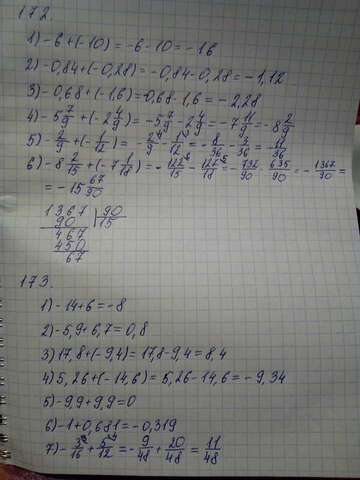 172.
1) -6+(-10) = -6-10 = -16
2) -0,84+(-0,28) = -0,84-0,28 = -1,12
3) -0,68+(-1,6) = 0,68-1,6 = -2,28
4) -5 7/9 + (-2 4/9) = -5 7/9 - 2 4/9 = -7 11/9 = -8 2/9
5) -2/9 + (-1/12) = -2/9 - 1/12 = -8/36 - 3/36 = -11/36
6) -8 2/15 + (-7 1/18) = -122/15 - 127/18 = -732/90 - 635/90 = -1367/90 =
= -15 67/90
1367 | 90
90 | 15
467
450
67
173.
1) -14+6 = -8
2) -5,9+6,7 = 0,8
3) 17,8+(-9,4) = 17,8-9,4 = 8,4
4) 5,26+(-14,6) = 5,26-14,6 = -9,34
5) -9,9+9,9 = 0
6) -1+0,681 = -0,319
7) -3/16 + 5/12 = -9/48 + 20/48 = 11/48